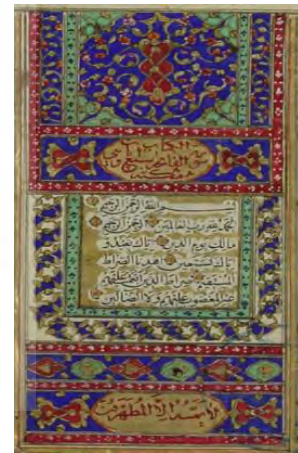 الكتاب
سورة الفاتحة سبع
بسم الله الرحمن الرحيم
الحمد لله رب العالمين الرحمن الرحيم
مالك يوم الدين اياك نعبد و
اياك نستعين اهدنا الصراط
المستقيم صراط الذين انعمت عليهم
غير المغضوب عليهم ولا الضالين
لا يمسه الا المطهرون